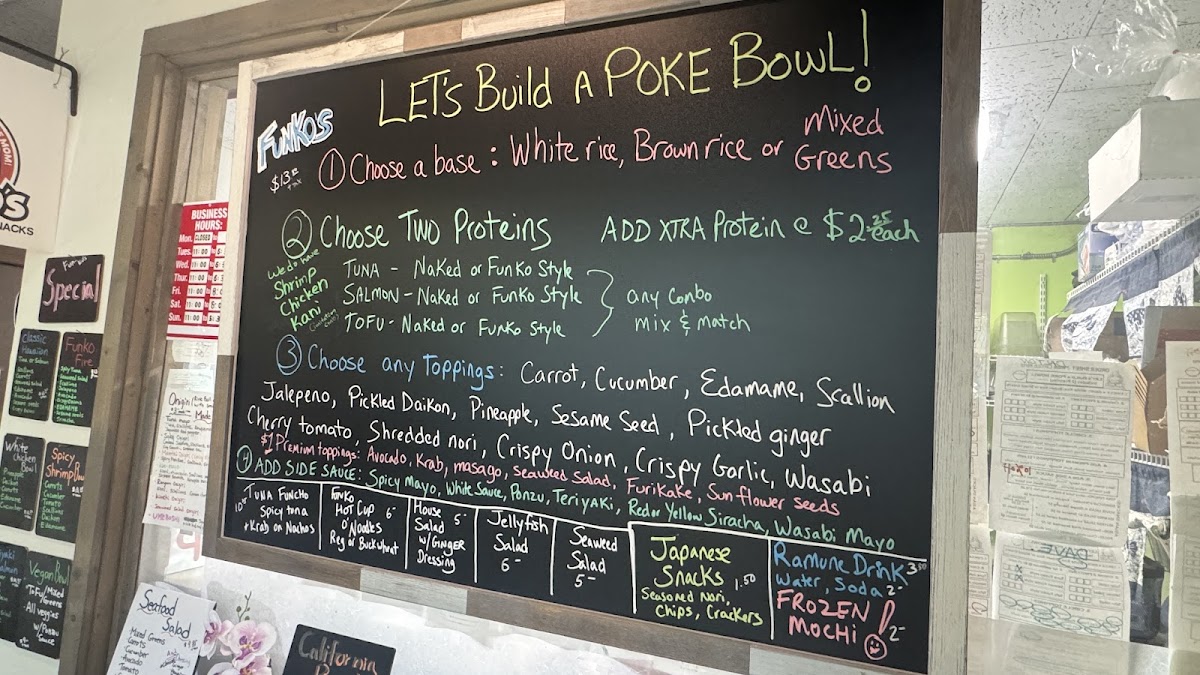 LET'S Build A POKE BOWL!
FUNKO'S
$13.
+ tax
① Choose a base: White rice, Brown rice or Mixed Greens
② Choose TWO Proteins
ADD XTRA Protein @ $2.25 each
We do have
Shrimp
Chicken
Kani
TUNA - Naked or Funko Style
SALMON - Naked or Funko Style
TOFU - Naked or Funko Style
any combo
mix & match
③ Choose any Toppings: Carrot, Cucumber, Edamame, Scallion
Jalepeno, Pickled Daikon, Pineapple, Sesame Seed, Pickled ginger
Cherry tomato, Shredded nori, Crispy Onion, Crispy Garlic, Wasabi
$1 Premium toppings: Avocado, Krab, masago, Seaweed Salad, Furikake, Sunflower seeds
④ ADD SIDE SAUCE: Spicy Mayo, White Sauce, Ponzu, Teriyaki, Red or Yellow Siracha, Wasabi Mayo
TUNA FUNCHO
Spicy tuna
+ Krab on Nachos
FUNKO
HOT CUP 6-
O'Noodles
Reg or Buckwheat
House
Salad 5-
W/GINGER
Dressing
Jellyfish
Salad
6-
Seaweed
Salad
5-
Japanese
Snacks 1.50
Seasoned Nori,
Chips, Crackers
Ramune Drink 3.00
Water, Soda 2-
FROZEN
MOCHi! 2-
BUSINESS
HOURS:
Mon. CLOSED
Tues.
Wed.
Thur.
Fri.
Sat.
Sun.
SNACKS
Special
Classic
Hawaiian
Funko
Fire
White
Chicken
Bowl
Spicy
Shrimp
Bowl
Vegan Bowl
Tofu/Mixed
Greens
All veggies
w/Ponzu
Sauce
Seafood
Salad
Mixed Greens
Carrots
Cucumber
Avocado
Tomato
California
DAVE